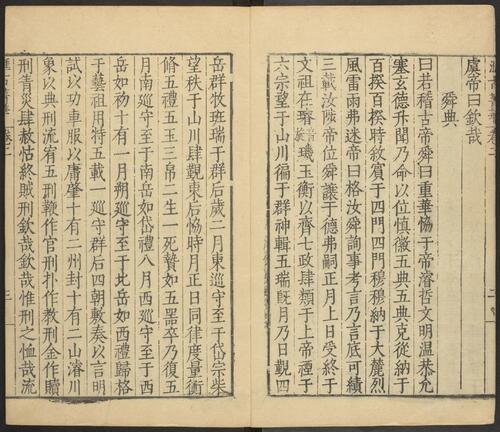 虞帝曰欽哉
舜典
曰若稽古帝舜曰重華恊于帝濬哲文明温恭允
塞玄德升聞乃命以位慎徽五典五典克從納于
百揆百揆時敘賓于四門四門穆穆納于大麓烈
風雷雨弗迷帝曰格汝舜詢事考言乃言底可績
三載汝陟帝位舜讓于德弗嗣正月上日受終于
文祖在璿音旋璣玉衡以齊七政肆類于上帝禋于
六宗望于山川徧于群神輯五瑞旣月乃日覲四
岳群牧班瑞于群后歲二月東巡守至于岱宗柴
望秩于山川肆覲東后恊時月正日同律度量衡
脩五禮五玉三帛二生一死贄如五器卒乃復五
月南巡守至于南岳如岱禮八月西巡守至于西
岳如初十有一月朔巡守至于北岳如西禮歸格
于藝祖用特五載一巡守群后四朝敷奏以言明
試以功車服以庸肇十有二州封十有二山濬川
象以典刑流宥五刑鞭作官刑扑作教刑金作贖
刑眚災肆赦怙終賊刑欽哉欽哉惟刑之恤哉流
三